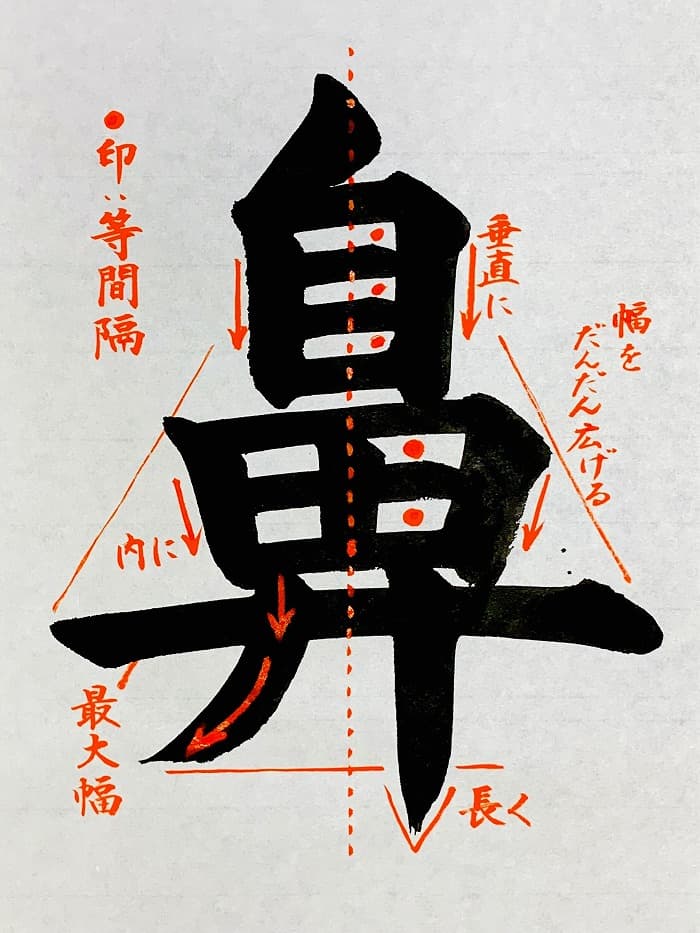 鼻
●印は等間隔
垂直に
幅を
だんだん広げる
内に
最大幅
長く